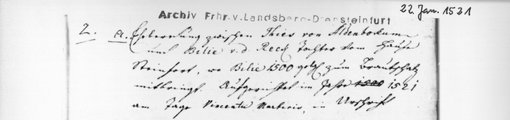 22 Jan. 1521
Archiv Frhr.v.Landsberg-Drensteinfurt
2. a. Eheberedung zwischen Thies von Aldenbockum
und Bilie v.d. Reck Tochter vom Hause
Steinfort, wo Bilie 1500 gfl zum Brautschatz
mitbringt. Aufgerichtet im Jahre 1500 1521
am Tage Vincentii Martiris, in Urschrift